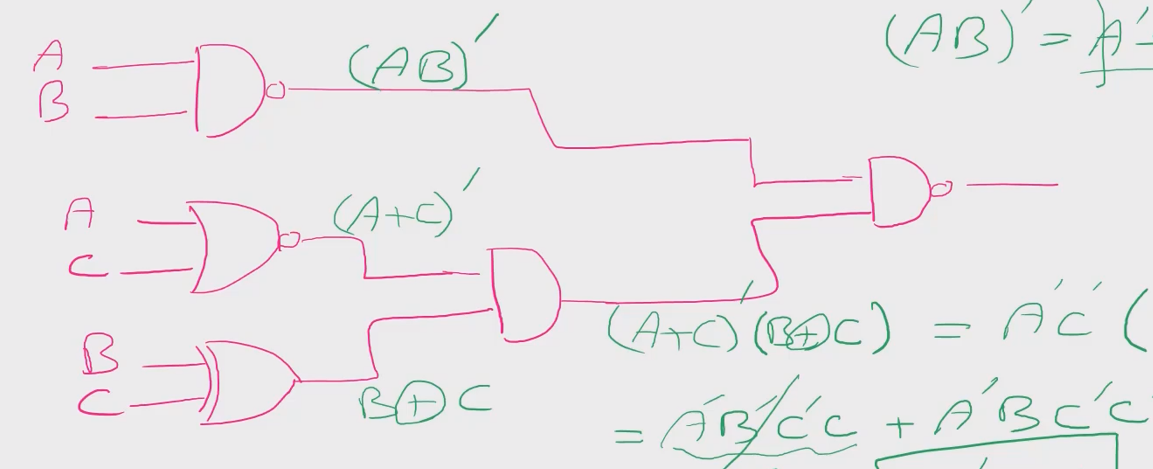 (AB)' = A'
A
B
(AB)'
A
C
(A+C)'
B
C
B⊕C
(A+C)'(B⊕C) = A'C'(
= A'B'C'C + A'BC'C'